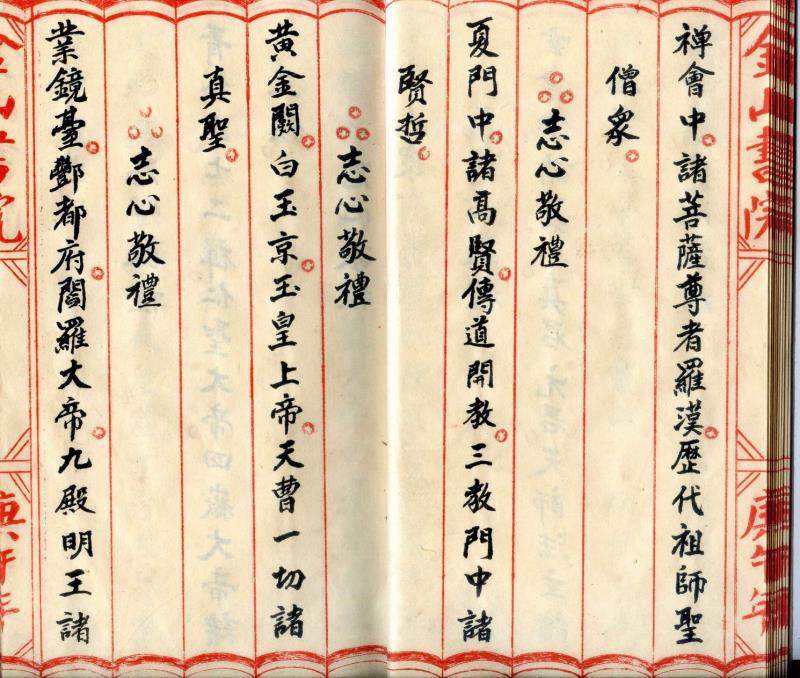 金山書院
庚午年
禅會中諸菩薩尊者羅漢歷代祖師聖
僧衆
志心敬禮
夏門中諸高賢傳道開教三教門中諸
賢哲
志心敬禮
黄金闕白玉京玉皇上帝天曹一切諸
真聖
志心敬禮
業鏡臺酆都府閻羅大帝九殿明王諸
金山書院
庚午年